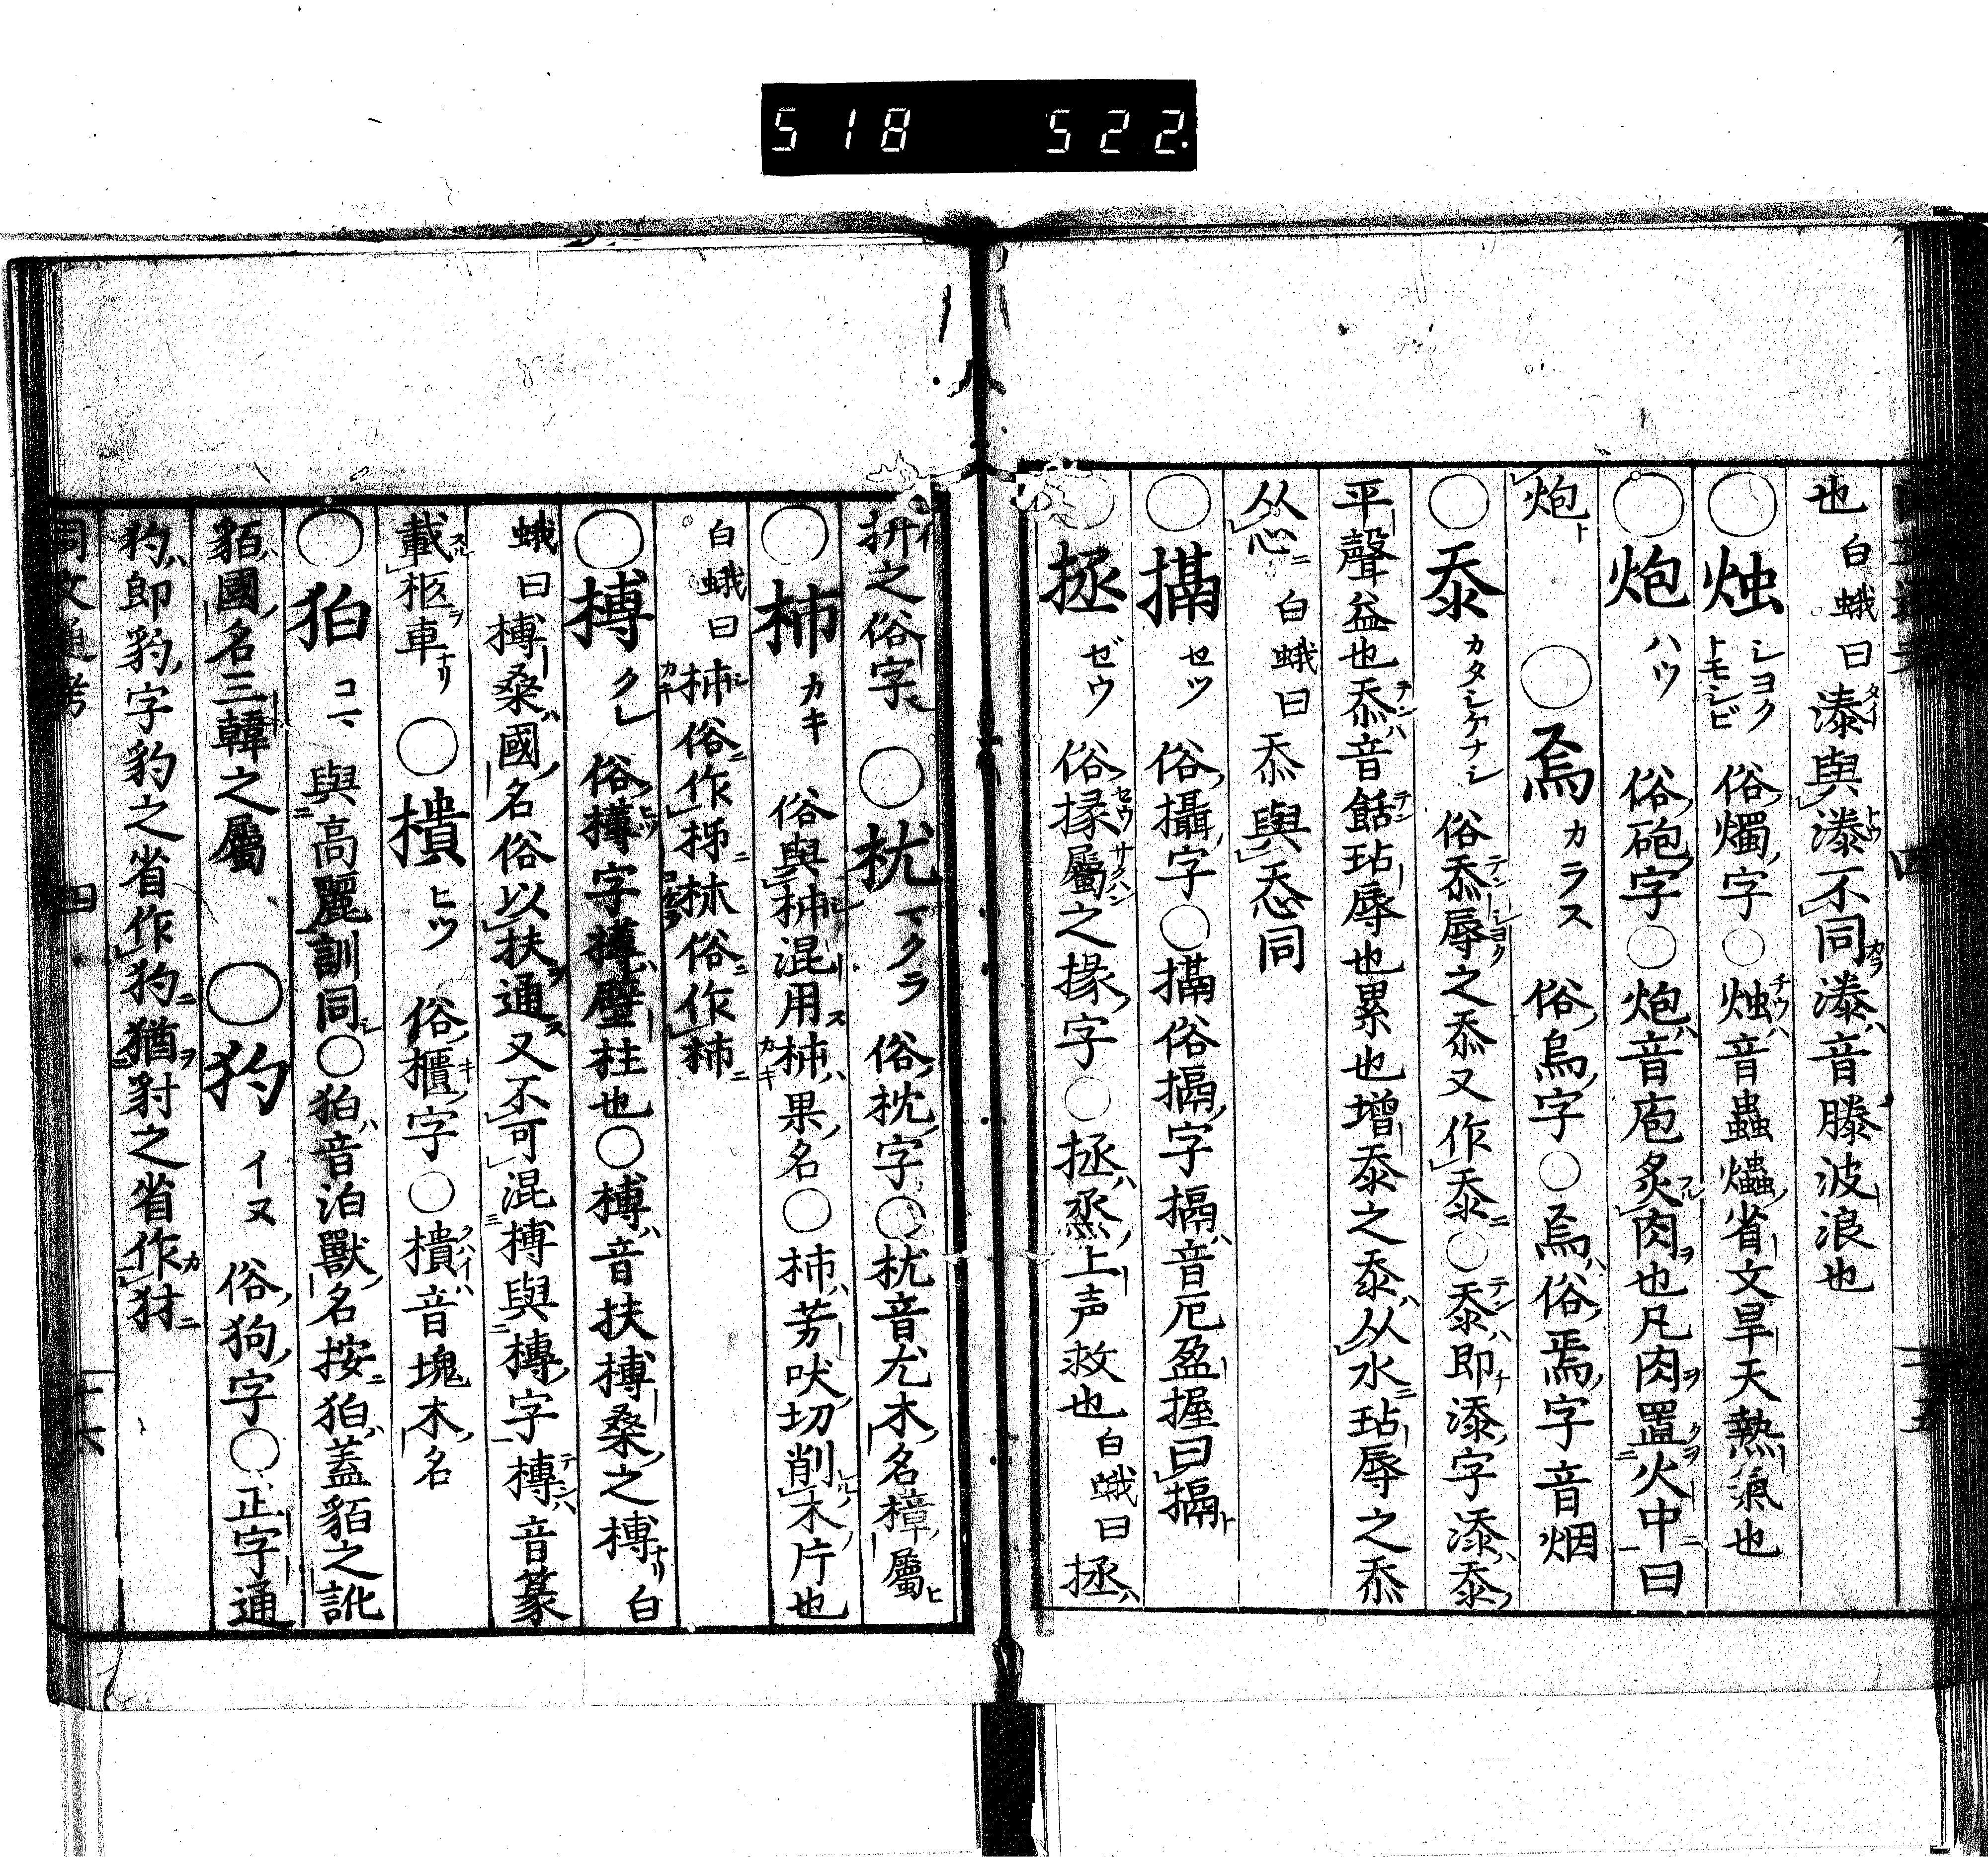 518 522.
也 白蛾曰漆與漆不同漆音滕波浪也
○烛 シヨク トモシビ 俗燭字○烛音蟲爞省文旱天熱氣也
○炮 ハウ 俗砲字○炮音庖炙肉也凡肉置火中曰
炮 ○焉 カラス 俗烏字○焉俗焉字音烟
○忝 カタシケナシ 俗忝辱之忝又作㳟○㳟即添字添㳟
平聲益也忝音餂玷辱也累也增㳟之㳟从水玷辱之忝
从心 白蛾曰忝與忝同
○搹 セツ 俗攝字○搹俗搹字搹音厄盈握曰搹
○拯 ゼウ 俗掾屬之掾字○拯烝上声救也 白蛾曰拯
拼之俗字 ○枕 マクラ 俗枕字○枕音尤木名樟屬
○柿 カキ 俗與柿混用柿果名○柿芳吠切削木片也
白蛾曰柿俗作柹柹俗作柿
○榑 クレ 俗欂字欂壁柱也○榑音扶榑桑之榑 白
蛾曰榑桑國名俗以扶通又不可混榑與槫字槫音篆
載柩車 ○樻 ヒツ 俗櫃字○樻音塊木名
○狛 コマ 與高麗訓同○狛音泊獸名按狛蓋貊之訛
貊國名三韓之屬 ○犳 イヌ 俗狗字○正字通
犳即豹字豹之省作犳猶豺之省作犲
四 十六